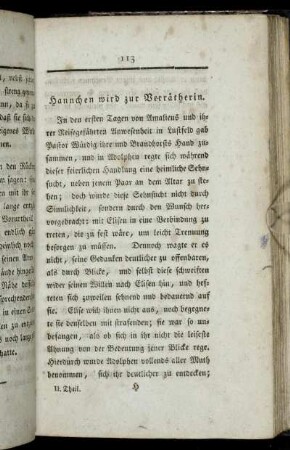 113
Hannchen wird zur Verrätherin.
In den ersten Tagen von Amaliens und ih-
rer Reisegefährten Anwesenheit in Lustfeld gab
Pastor Würdig ihre und Brandheists Hand zu-
sammen, und in Adolphen regte sich während
dieser feierlichen Handlung eine heimliche Sehn-
sucht, neben jenem Paar an dem Altar zu ste-
hen; doch wurde diese Sehnsucht nicht durch
Sinnlichkeit, sondern durch den Wunsch her-
vorgebracht; mit Elisen in eine Verbindung zu
treten, die zu fest wäre, um leicht Trennung
besorgen zu müssen. Dennoch wagte er es
nicht, seine Gedanken deutlicher zu offenbaren,
als durch Blicke, und selbst diese schweiften
wider seinen Willen nach Elisen hin, und hef-
teten sich zuweilen sehnend und bedauernd auf
sie. Elise wich ihnen nicht aus, noch begegne-
te sie denselben mit strafenden; sie war so un-
befangen, als ob sich in ihr nicht die leiseste
Ahnung von der Bedeutung jener Blicke rege.
Hierdurch wurde Adolphen vollends aller Muth
benommen, sich ihr deutlicher zu entdecken;
II. Theil. H